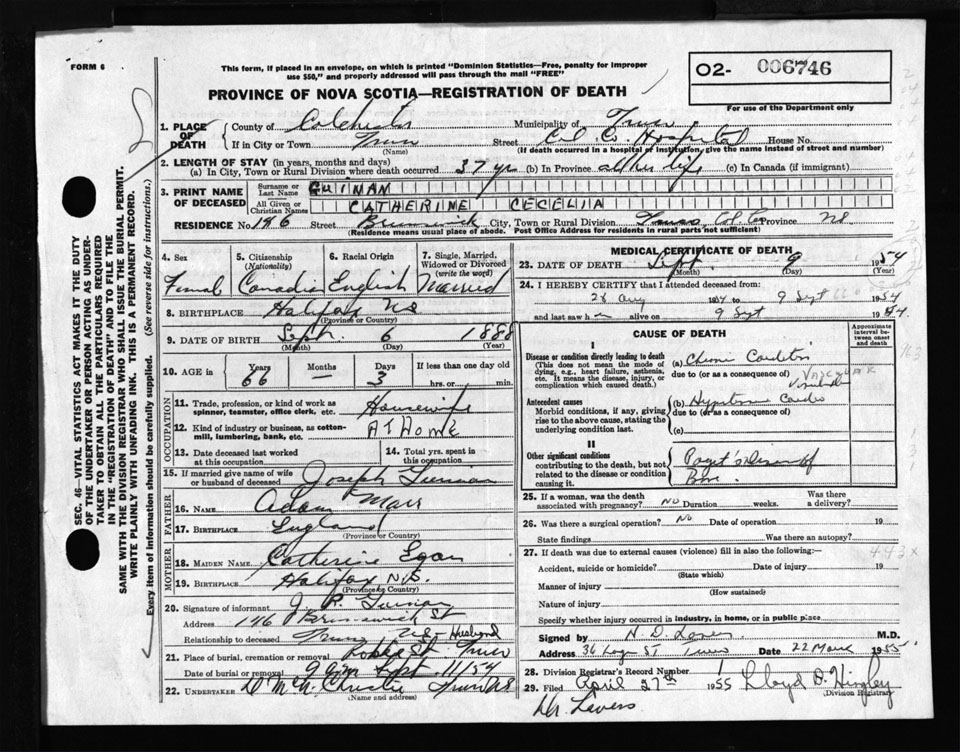 FORM 6
This form, if placed in an envelope, on which is printed "Dominion Statistics—Free, penalty for improper
use $50," and properly addressed will pass through the mail "FREE"
02- 006746
PROVINCE OF NOVA SCOTIA—REGISTRATION OF DEATH
For use of the Department only
1. PLACE OF DEATH
County of Colchester Municipality of Truro
If in City or Town Truro Street Col. Co. Hospital House No.
(Name) (If death occurred in a hospital or institution, give the name instead of street and number)
2. LENGTH OF STAY (in years, months and days)
(a) In City, Town or Rural Division where death occurred 37 yr (b) In Province all her life (c) In Canada (if immigrant)
3. PRINT NAME OF DECEASED
Surname or Last Name GUINAN
All Given or Christian Names CATHERINE CECELIA
RESIDENCE No. 146 Street Brunswick City, Town or Rural Division Truro Col. Co. Province NS
(Residence means usual place of abode. Post Office Address for residents in rural parts not sufficient)
4. Sex
Femal
5. Citizenship (Nationality)
Canadian
6. Racial Origin
English
7. Single, Married, Widowed or Divorced (write the word)
Married
8. BIRTHPLACE Halifax NS
(Province or Country)
9. DATE OF BIRTH Sept. 6 1888
(Month) (Day) (Year)
10. AGE in Years Months Days If less than one day old
66 — 3 hrs. or min.
OCCUPATION
11. Trade, profession, or kind of work as spinner, teamster, office clerk, etc. Housewife
12. Kind of industry or business, as cotton-mill, lumbering, bank, etc. AT HOME
13. Date deceased last worked at this occupation
14. Total yrs. spent in this occupation
15. If married give name of wife or husband of deceased Joseph Guinan
FATHER
16. Name Adam Marr
17. Birthplace England
(Province or Country)
MOTHER
18. MAIDEN NAME Catherine Egan
19. BIRTHPLACE Halifax N.S.
(Province or Country)
20. Signature of informant J. P. Guinan
Address 146 Brunswick St
Relationship to deceased Truro NS Husband
21. Place of burial, cremation or removal Robie St. Truro
Date of burial or removal 9 am Sept 11/54
22. UNDERTAKER D McN. Christie Truro NS
(Name and address)
MEDICAL CERTIFICATE OF DEATH
23. DATE OF DEATH Sept. 9 1954
(Month) (Day) (Year)
24. I HEREBY CERTIFY that I attended deceased from:
28 Aug 1954 to 9 Sept 1954
and last saw her alive on 9 Sept 1954.
CAUSE OF DEATH
Approximate interval between onset and death
I
Disease or condition directly leading to death
(This does not mean the mode of dying, e.g., heart failure, asthenia, etc. It means the disease, injury, or complication which caused death.)
(a)
due to (or as a consequence of) VASCULAR
Antecedent causes
Morbid conditions, if any, giving rise to the above cause, stating the underlying condition last.
(b) Hypertensive Cardio
due to (or as a consequence of)
(c)
II
Other significant conditions
contributing to the death, but not related to the disease or condition causing it.
Paget's Disease of
Bone
25. If a woman, was the death associated with pregnancy? NO Duration weeks. Was there a delivery?
26. Was there a surgical operation? No Date of operation 19
State findings Was there an autopsy?
27. If death was due to external causes (violence) fill in also the following:— 443x
Accident, suicide or homicide? Date of injury 19
(State which)
Manner of injury
(How sustained)
Nature of injury
Specify whether injury occurred in industry, in home, or in public place
Signed by N. D. Lavers M.D.
Address 36 Logan ST Truro Date 22 March 1955
28. Division Registrar's Record Number 1
29. Filed April 27th 1955 Lloyd D. Hingley
(Division Registrar)
Dr. Lavers
SEC. 46—VITAL STATISTICS ACT MAKES IT THE DUTY
OF THE UNDERTAKER OR PERSON ACTING AS UNDER-
TAKER TO OBTAIN ALL THE PARTICULARS REQUIRED
IN THE "REGISTRATION OF DEATH" AND TO FILE THE
SAME WITH THE DIVISION REGISTRAR WHO SHALL ISSUE THE BURIAL PERMIT.
WRITE PLAINLY WITH UNFADING INK. THIS IS A PERMANENT RECORD.
Every item of information should be carefully supplied. (See reverse side for instructions.)